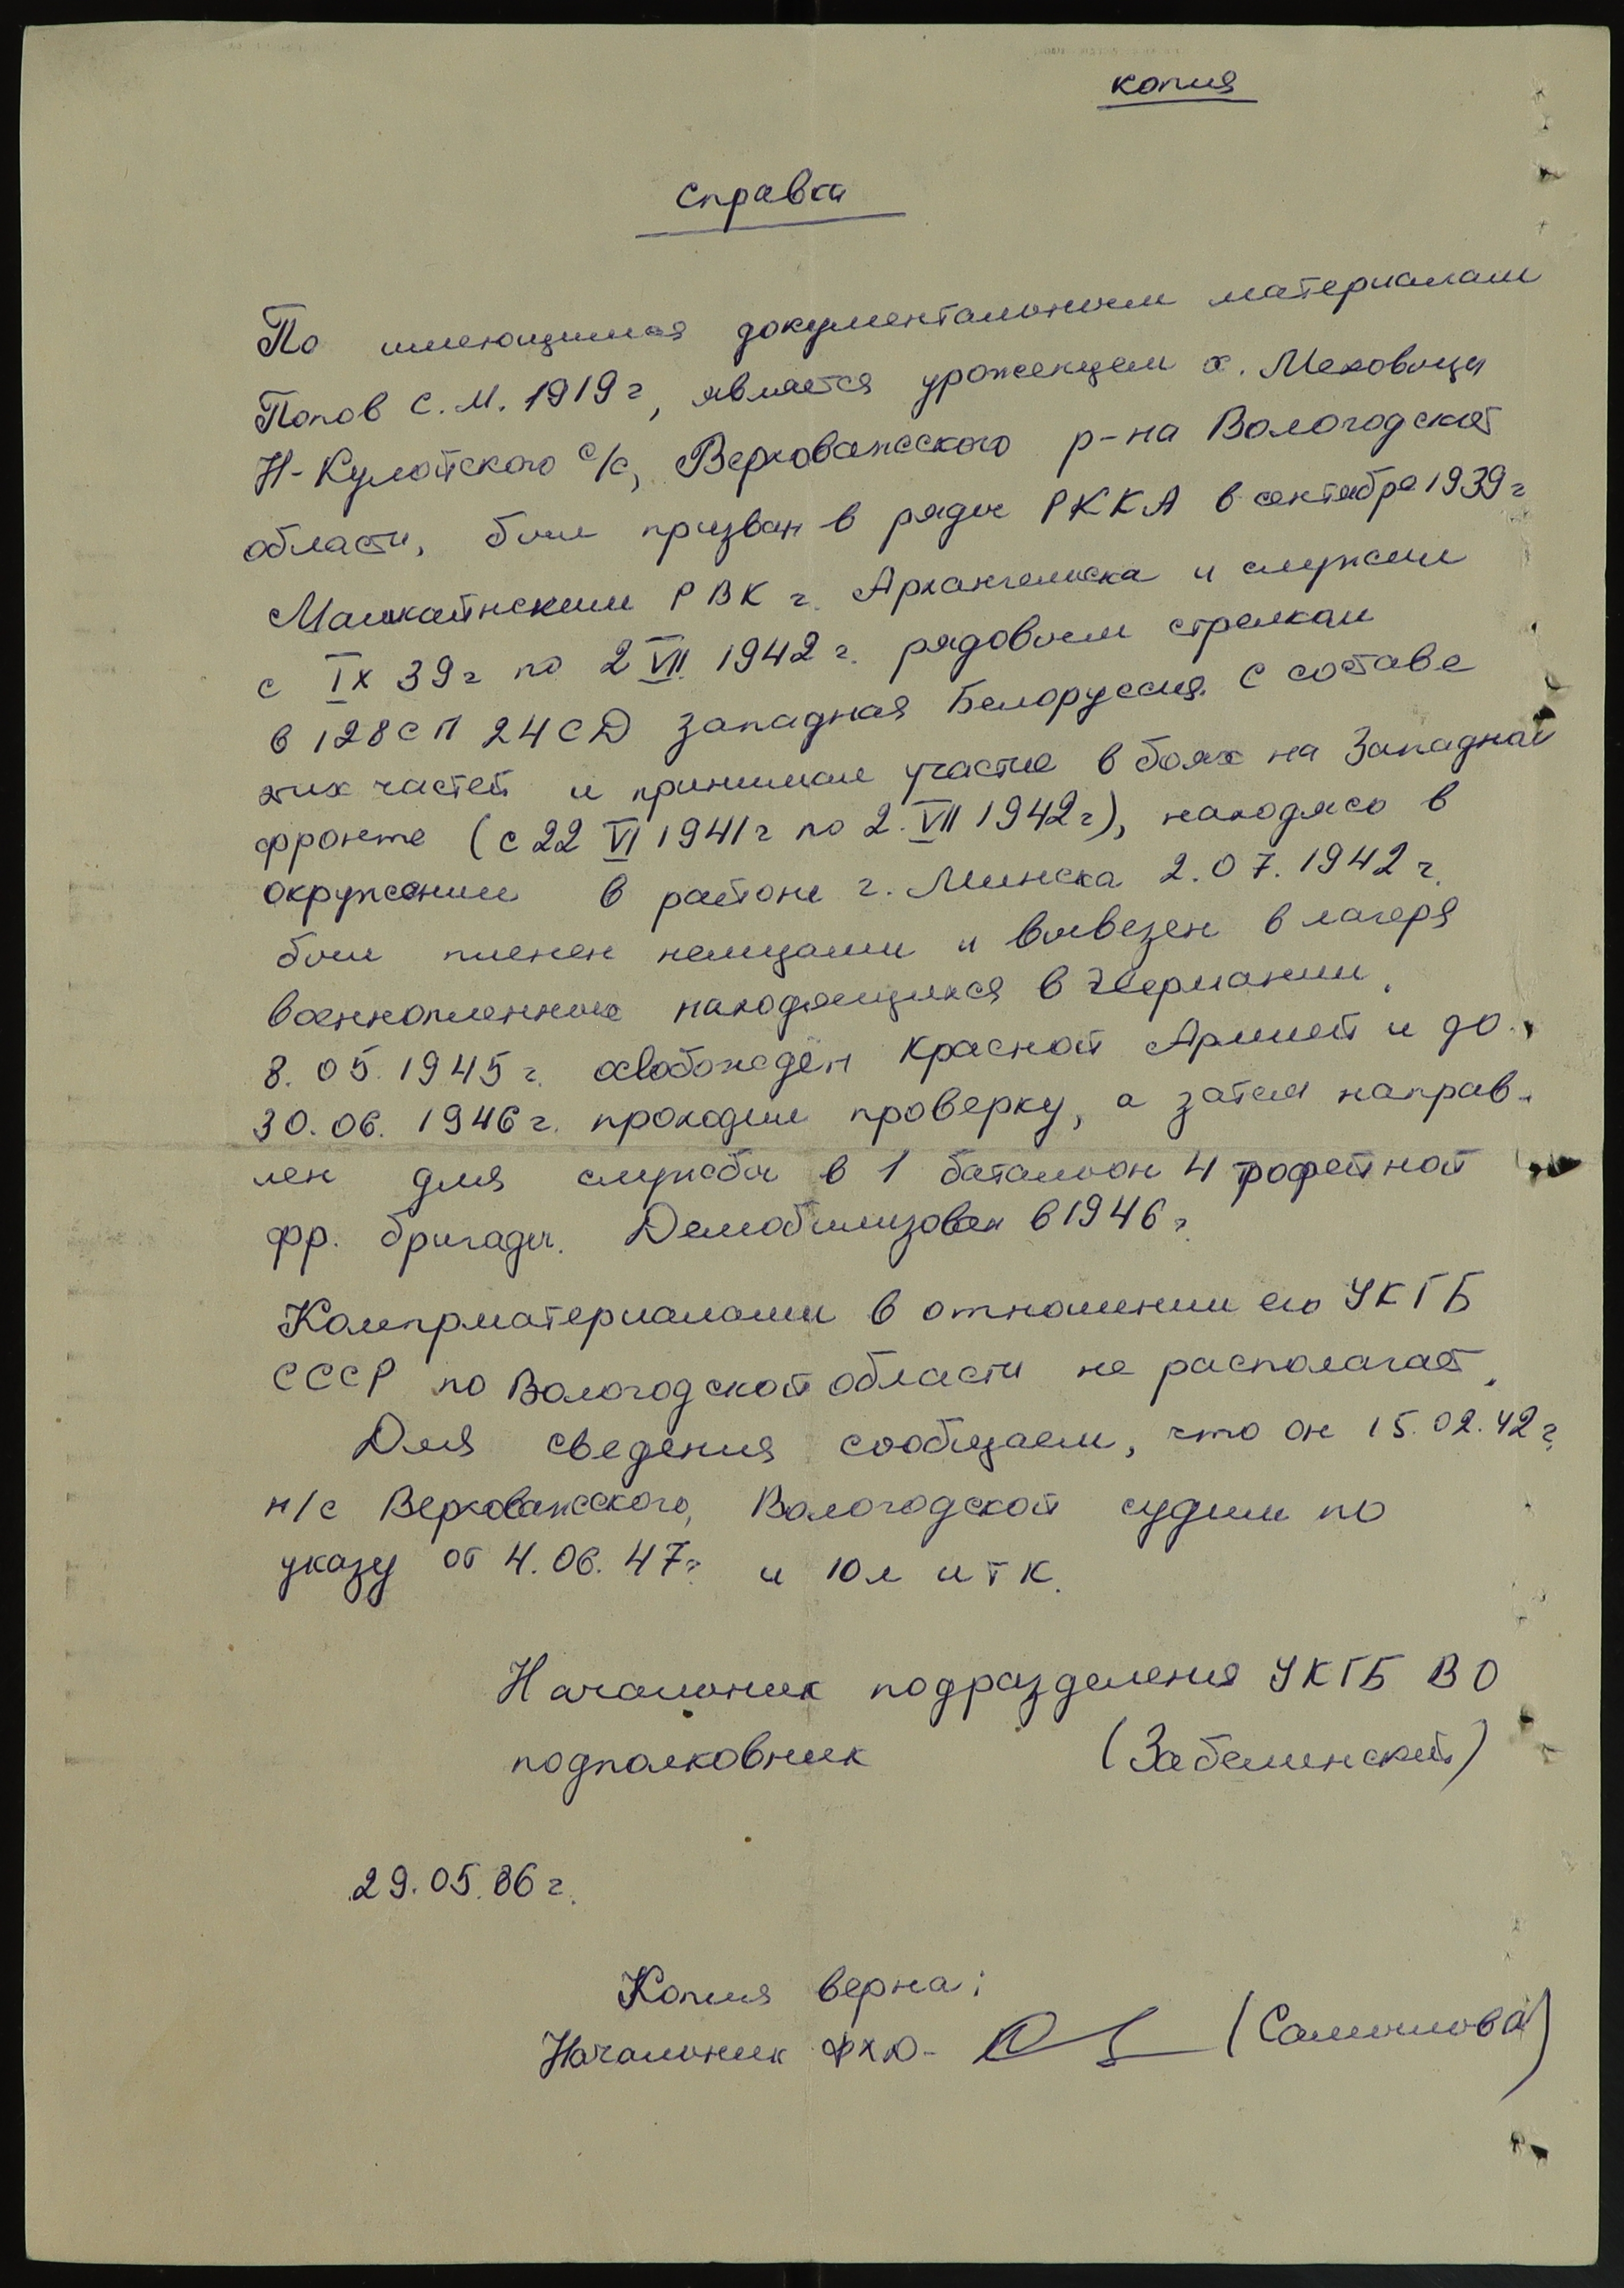 копия
Справка
По имеющимся документальным материалам
Попов С.М. 1919 г, является урожденцем х. Меховица
Н-Кулойского с/с, Верховажсского р-на Вологодской
области, был призван в ряды РККА в сентябре 1939 г
Маймайнским РВК г. Архангельска и служил
с IX 39 г по 2 VII 1942 г. рядовым стрелком
в 128 СП 24 СД западная Белоруссия. С составе
этих частей и принимал участие в боях на Западном
фронте (с 22 VI 1941 г по 2. VII 1942 г), находясь в
окружении в районе г. Минска 2.07.1942 г.
был пленен немцами и вывезен в лагеря
военнопленных находящихся в Германии.
8.05.1945 г. освобождён Красной Армией и до
30.06.1946 г. проходил проверку, а затем направ-
лен для службы в 1 батальон 4 трофейной
фр. бригады. Демобилизован в 1946 г.
Компрматериалами в отношении его УКГБ
СССР по Вологодской области не располагает.
Для сведения сообщаем, что он 15.02.42 г.
н/с Верховажсского, Вологодской судим по
указу от 4.06.47 г. и 10 л ИТК.
Начальник подразделения УКГБ ВО
подполковник (Забелинский)
29.05.86 г.
Копия верна:
Начальник ФХО- (Самойлова)